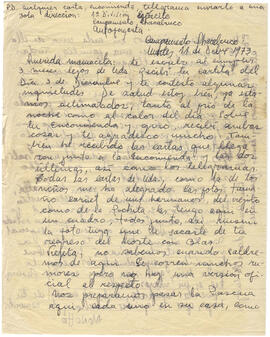 P.D. cualquier carta, encomienda, telegrama enviarlo a una
sola dirección: 1ª División Ejército
Campamento Chacabuco
Antofagasta
Campamento Chacabuco
Martes 11 de Dic 1973
Querida mamacita: te escribo al cumplir
1 mes lejos de Uds. recibí tu cartita del
día 3 de Diciembre y te contesto algunas
inquietudes. De salud estoy bien, ya
aclimatados, tanto al frío de la
noche como al calor del día. Sobre
tu encomienda y giro, recibí ambas
cosas y te agradezco mucho. Tam
bién he recibido las cartas que
con junto a la encomienda y las dos
así como los telegramas
todas las cartas de Uds. como la de los
me ha alegrado. La foto tama
ño carnet de mis hermanos, del vientito
como de la Pochita las tengo aquí en
un cuadro todas junto, de
la foto tuya que te sacaste de tu
regreso del Norte con Blas
Viejita, no sabemos cuando saldre
mos de aquí. Se corren muchos ru
mores pero no hay una versión ofi
cial al respecto.
Nos preparamos pasar la Pascua
aquí, cada uno en su casa, como